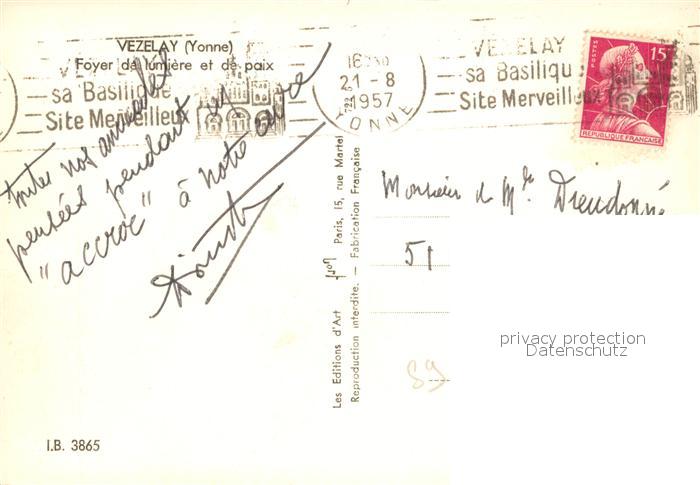 VEZELAY (Yonne)
Foyer de lumière et de paix
VEZELAY
sa Basilique
Site Merveilleux
16 30
21-8
1957
YONNE
VEZELAY
sa Basilique
Site Merveilleux
POSTES
15F
REPUBLIQUE FRANÇAISE
toutes nos amicales
pensées pendant
"accroc" à notre
Monsieur & Mme Dieudonné
51
Les Editions d'Art Yvon Paris, 15, rue Martel
Reproduction interdite. — Fabrication Française
89
privacy protection
Datenschutz
I.B. 3865